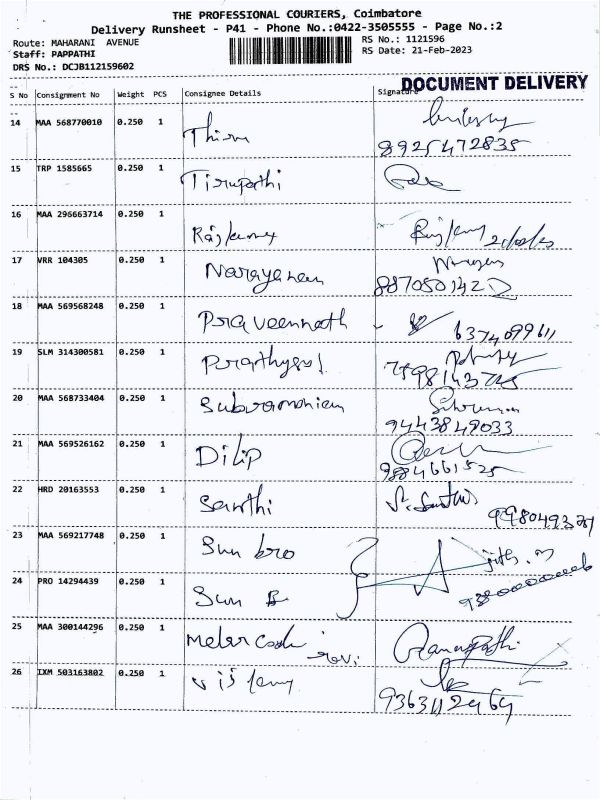 THE PROFESSIONAL COURIERS, Coimbatore
Delivery Runsheet - P41 - Phone No.:0422-3505555 - Page No.:2
Route: MAHARANI AVENUE
RS No.: 1121596
Staff: PAPPATHI
RS Date: 21-Feb-2023
DRS No.: DCJB112159602
DOCUMENT DELIVERY
S No Consignment No Weight PCS Consignee Details Signature
14 MAA 568770010 0.250 1
8925472835
15 TRP 1585665 0.250 1 Tirupathi
16 MAA 296663714 0.250 1
17 VRR 104305 0.250 1 Narayanan
18 MAA 569568248 0.250 1 Praveennath
6374099611
19 SLM 314300581 0.250 1
20 MAA 568733404 0.250 1 Subramaniam
9443849033
21 MAA 569526162 0.250 1 Dilip
9884661525
22 HRD 20163553 0.250 1 Santhi
23 MAA 569217748 0.250 1 Sun bro
24 PRO 14294439 0.250 1 Sun B
25 MAA 300144296 0.250 1
26 IXM 503163802 0.250 1
9363112464